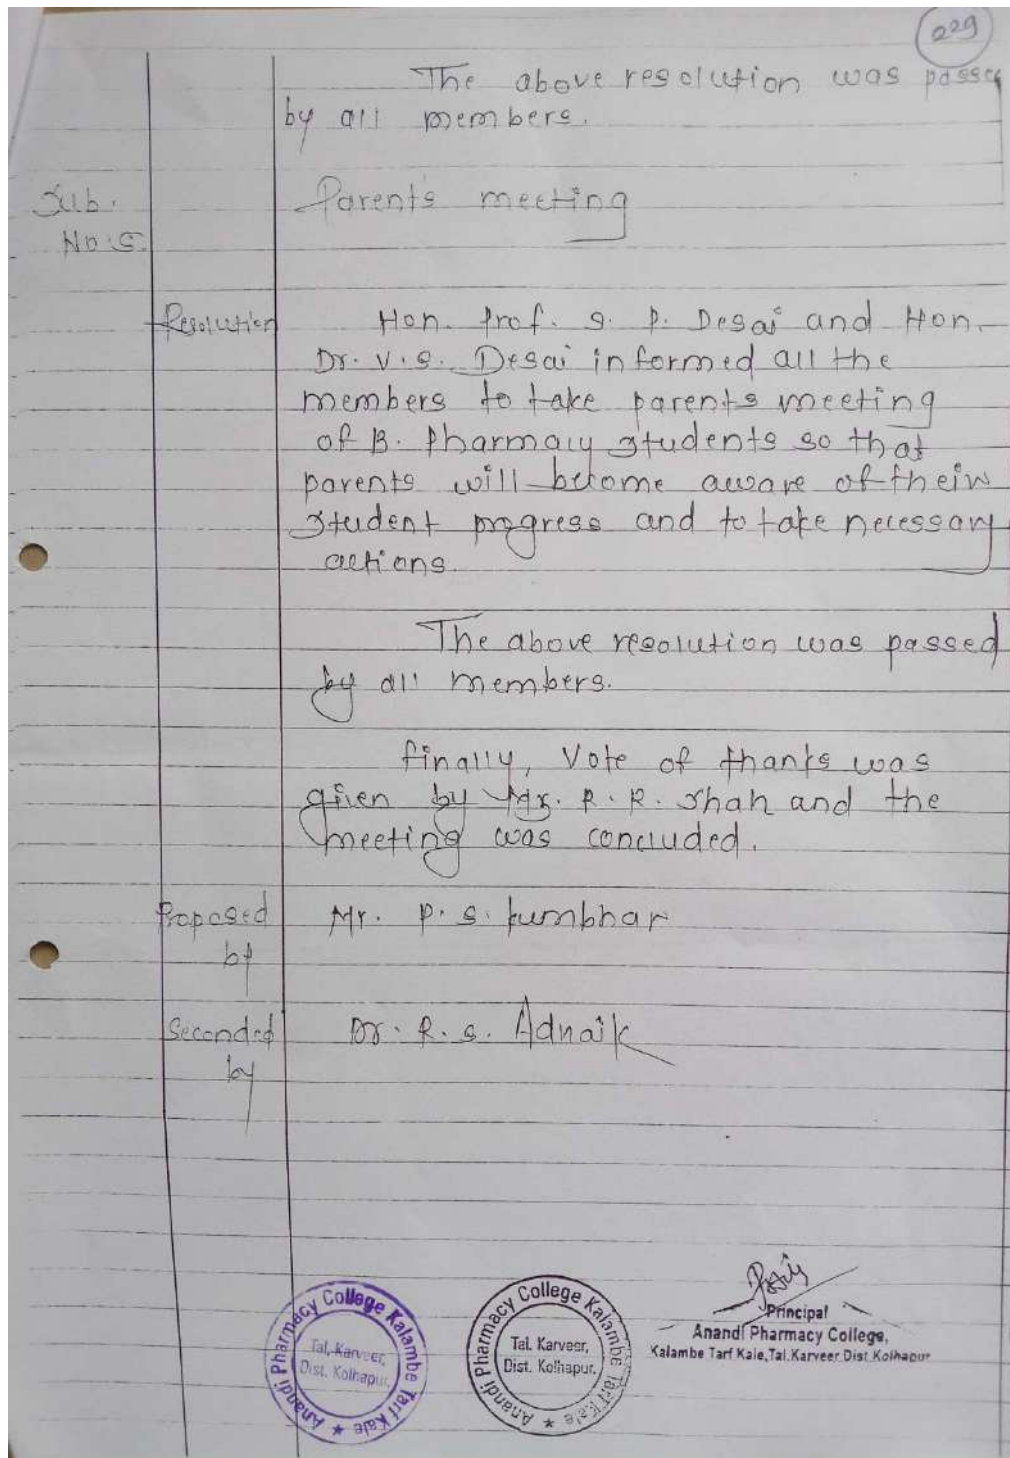 229
The above resolution was passe
by all members.
Sub. Parents meeting
No. 5
Resolution Hon. Prof. S. P. Desai and Hon.
Dr. V. S. Desai informed all the
members to take parents meeting
of B. Pharmacy students so that
parents will become aware of their
student progress and to take necessary
actions.
The above resolution was passed
by all members.
Finally, Vote of thanks was
given by R. R. Shah and the
meeting was concluded.
Proposed Mr. P. S. Kumbhar
by
Seconded Dr. R. S. Adnaik
by
Anandi Pharmacy College Kalambe Tarf Kale
Tal. Karveer,
Dist. Kolhapur.
Anandi Pharmacy College Kalambe Tarf Kale
Tal. Karveer,
Dist. Kolhapur.
Principal
Anandi Pharmacy College,
Kalambe Tarf Kale, Tal. Karveer Dist Kolhapur